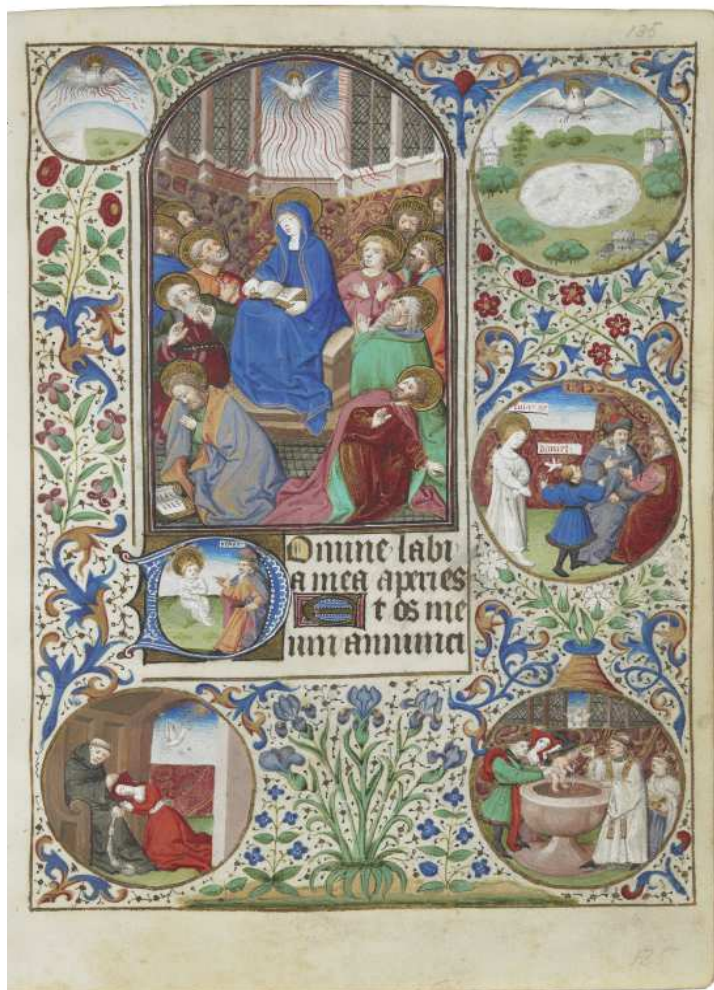 Domine labi
a mea aperies
Et os me
um annunci